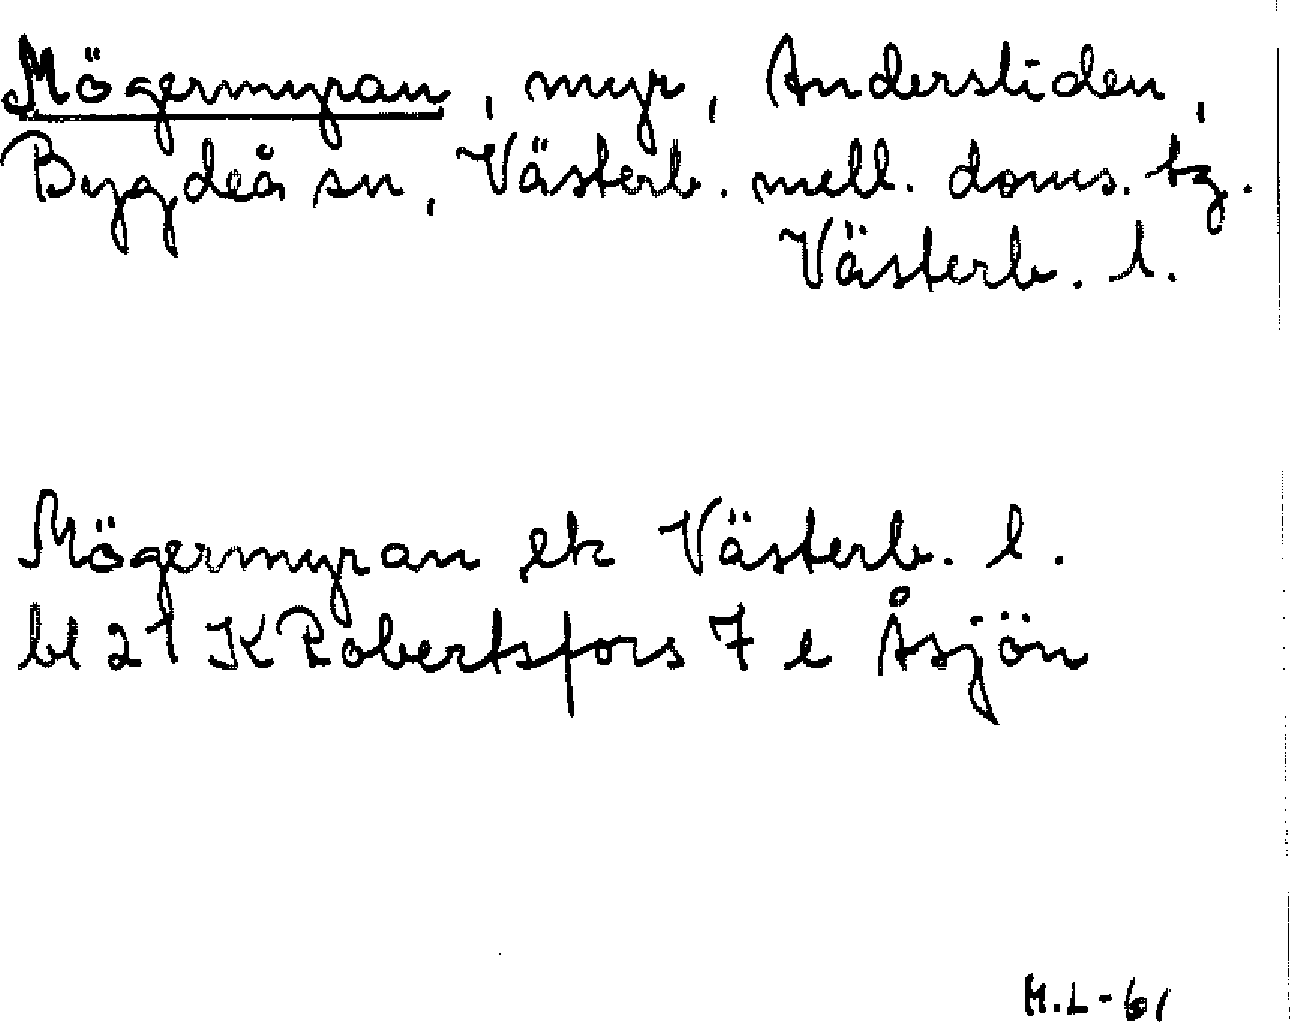 Mögermyran, myr, Andersliden,
Bygdeå sn, Västerb. mell. doms. tg.
Västerb. l.
Mögermyran ek Västerb. l.
bl 21 K Robertsfors 7 e Åsjön
M.L-61